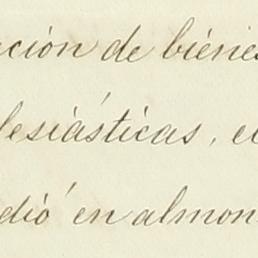 ación de bienes
lesiásticas, e
dió en almon